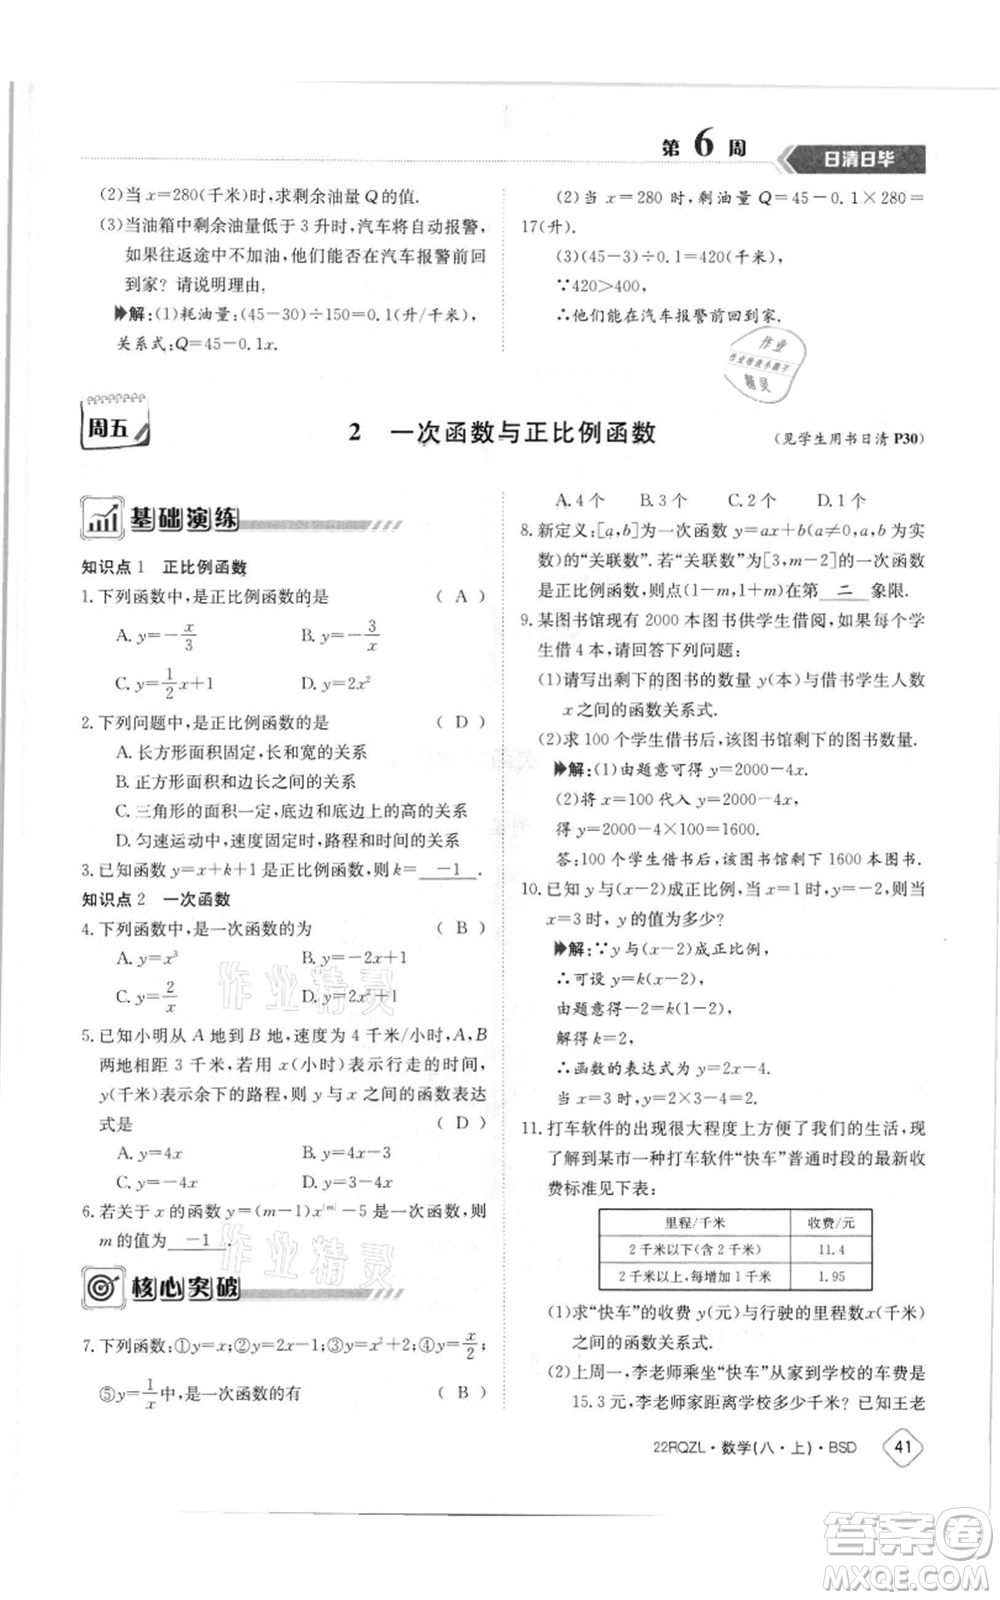 第6周
日清日毕
(2)当 x=280(千米)时,求剩余油量 Q 的值.
(3)当油箱中剩余油量低于 3 升时,汽车将自动报警,
如果往返途中不加油,他们能否在汽车报警前回
到家? 请说明理由.
解:(1)耗油量:(45-30)÷150=0.1(升/千米),
关系式:Q=45-0.1x.
(2)当 x=280 时,剩油量 Q=45-0.1×280=
17(升).
(3)(45-3)÷0.1=420(千米),
∵420>400,
∴他们能在汽车报警前回到家.
作业
作业精灵
精灵
周五
2 一次函数与正比例函数
(见学生用书日清 P30)
基础演练
知识点 1 正比例函数
1.下列函数中,是正比例函数的是 ( A )
A. y=-x/3 B. y=-3/x
C. y=1/2x+1 D. y=2x²
2.下列问题中,是正比例函数的是 ( D )
A.长方形面积固定,长和宽的关系
B.正方形面积和边长之间的关系
C.三角形的面积一定,底边和底边上的高的关系
D.匀速运动中,速度固定时,路程和时间的关系
3.已知函数 y=x+k+1 是正比例函数,则 k= -1 .
知识点 2 一次函数
4.下列函数中,是一次函数的为 ( B )
A. y=x³ B. y=-2x+1
C. y=2/x D. y=2x²+1
5.已知小明从 A 地到 B 地,速度为 4 千米/小时,A,B
两地相距 3 千米,若用 x(小时)表示行走的时间,
y(千米)表示余下的路程,则 y 与 x 之间的函数表达
式是 ( D )
A. y=4x B. y=4x-3
C. y=-4x D. y=3-4x
6.若关于 x 的函数 y=(m-1)x|m|-5 是一次函数,则
m 的值为 -1 .
作业精灵
作业精灵
核心突破
7.下列函数:①y=x;②y=2x-1;③y=x²+2;④y=x/2;
⑤y=1/x中,是一次函数的有 ( B )
A.4 个 B.3 个 C.2 个 D.1 个
8.新定义:[a,b]为一次函数 y=ax+b(a≠0,a,b 为实
数)的“关联数”.若“关联数”为[3,m-2]的一次函数
是正比例函数,则点(1-m,1+m)在第 二 象限.
9.某图书馆现有 2000 本图书供学生借阅,如果每个学
生借 4 本,请回答下列问题:
(1)请写出剩下的图书的数量 y(本)与借书学生人数
x 之间的函数关系式.
(2)求 100 个学生借书后,该图书馆剩下的图书数量.
解:(1)由题意可得 y=2000-4x.
(2)将 x=100 代入 y=2000-4x,
得 y=2000-4×100=1600.
答:100 个学生借书后,该图书馆剩下 1600 本图书.
10.已知 y 与(x-2)成正比例,当 x=1 时,y=-2,当
x=3 时,y 的值为多少?
解:∵y 与(x-2)成正比例,
∴可设 y=k(x-2),
由题意得-2=k(1-2),
解得 k=2.
∴函数的关系式为 y=2x-4.
当 x=3 时,y=2×3-4=2.
11.打车软件的出现很大程度上方便了我们的生活,现
了解到某市一种打车软件“快车”普通时段的最新收
费标准见下表:
里程/千米 收费/元
2 千米以下(含 2 千米) 11.4
2 千米以上,每增加 1 千米 1.95
(1)求“快车”的收费 y(元)与行驶的里程数x(千米)
之间的函数关系式.
(2)上周一,李老师乘坐“快车”从家到学校的车费是
15.3 元,李老师家距离学校多少千米? 已知王老
22RQZL·数学(八·上)·BSD
41
答案卷
MXQE.COM